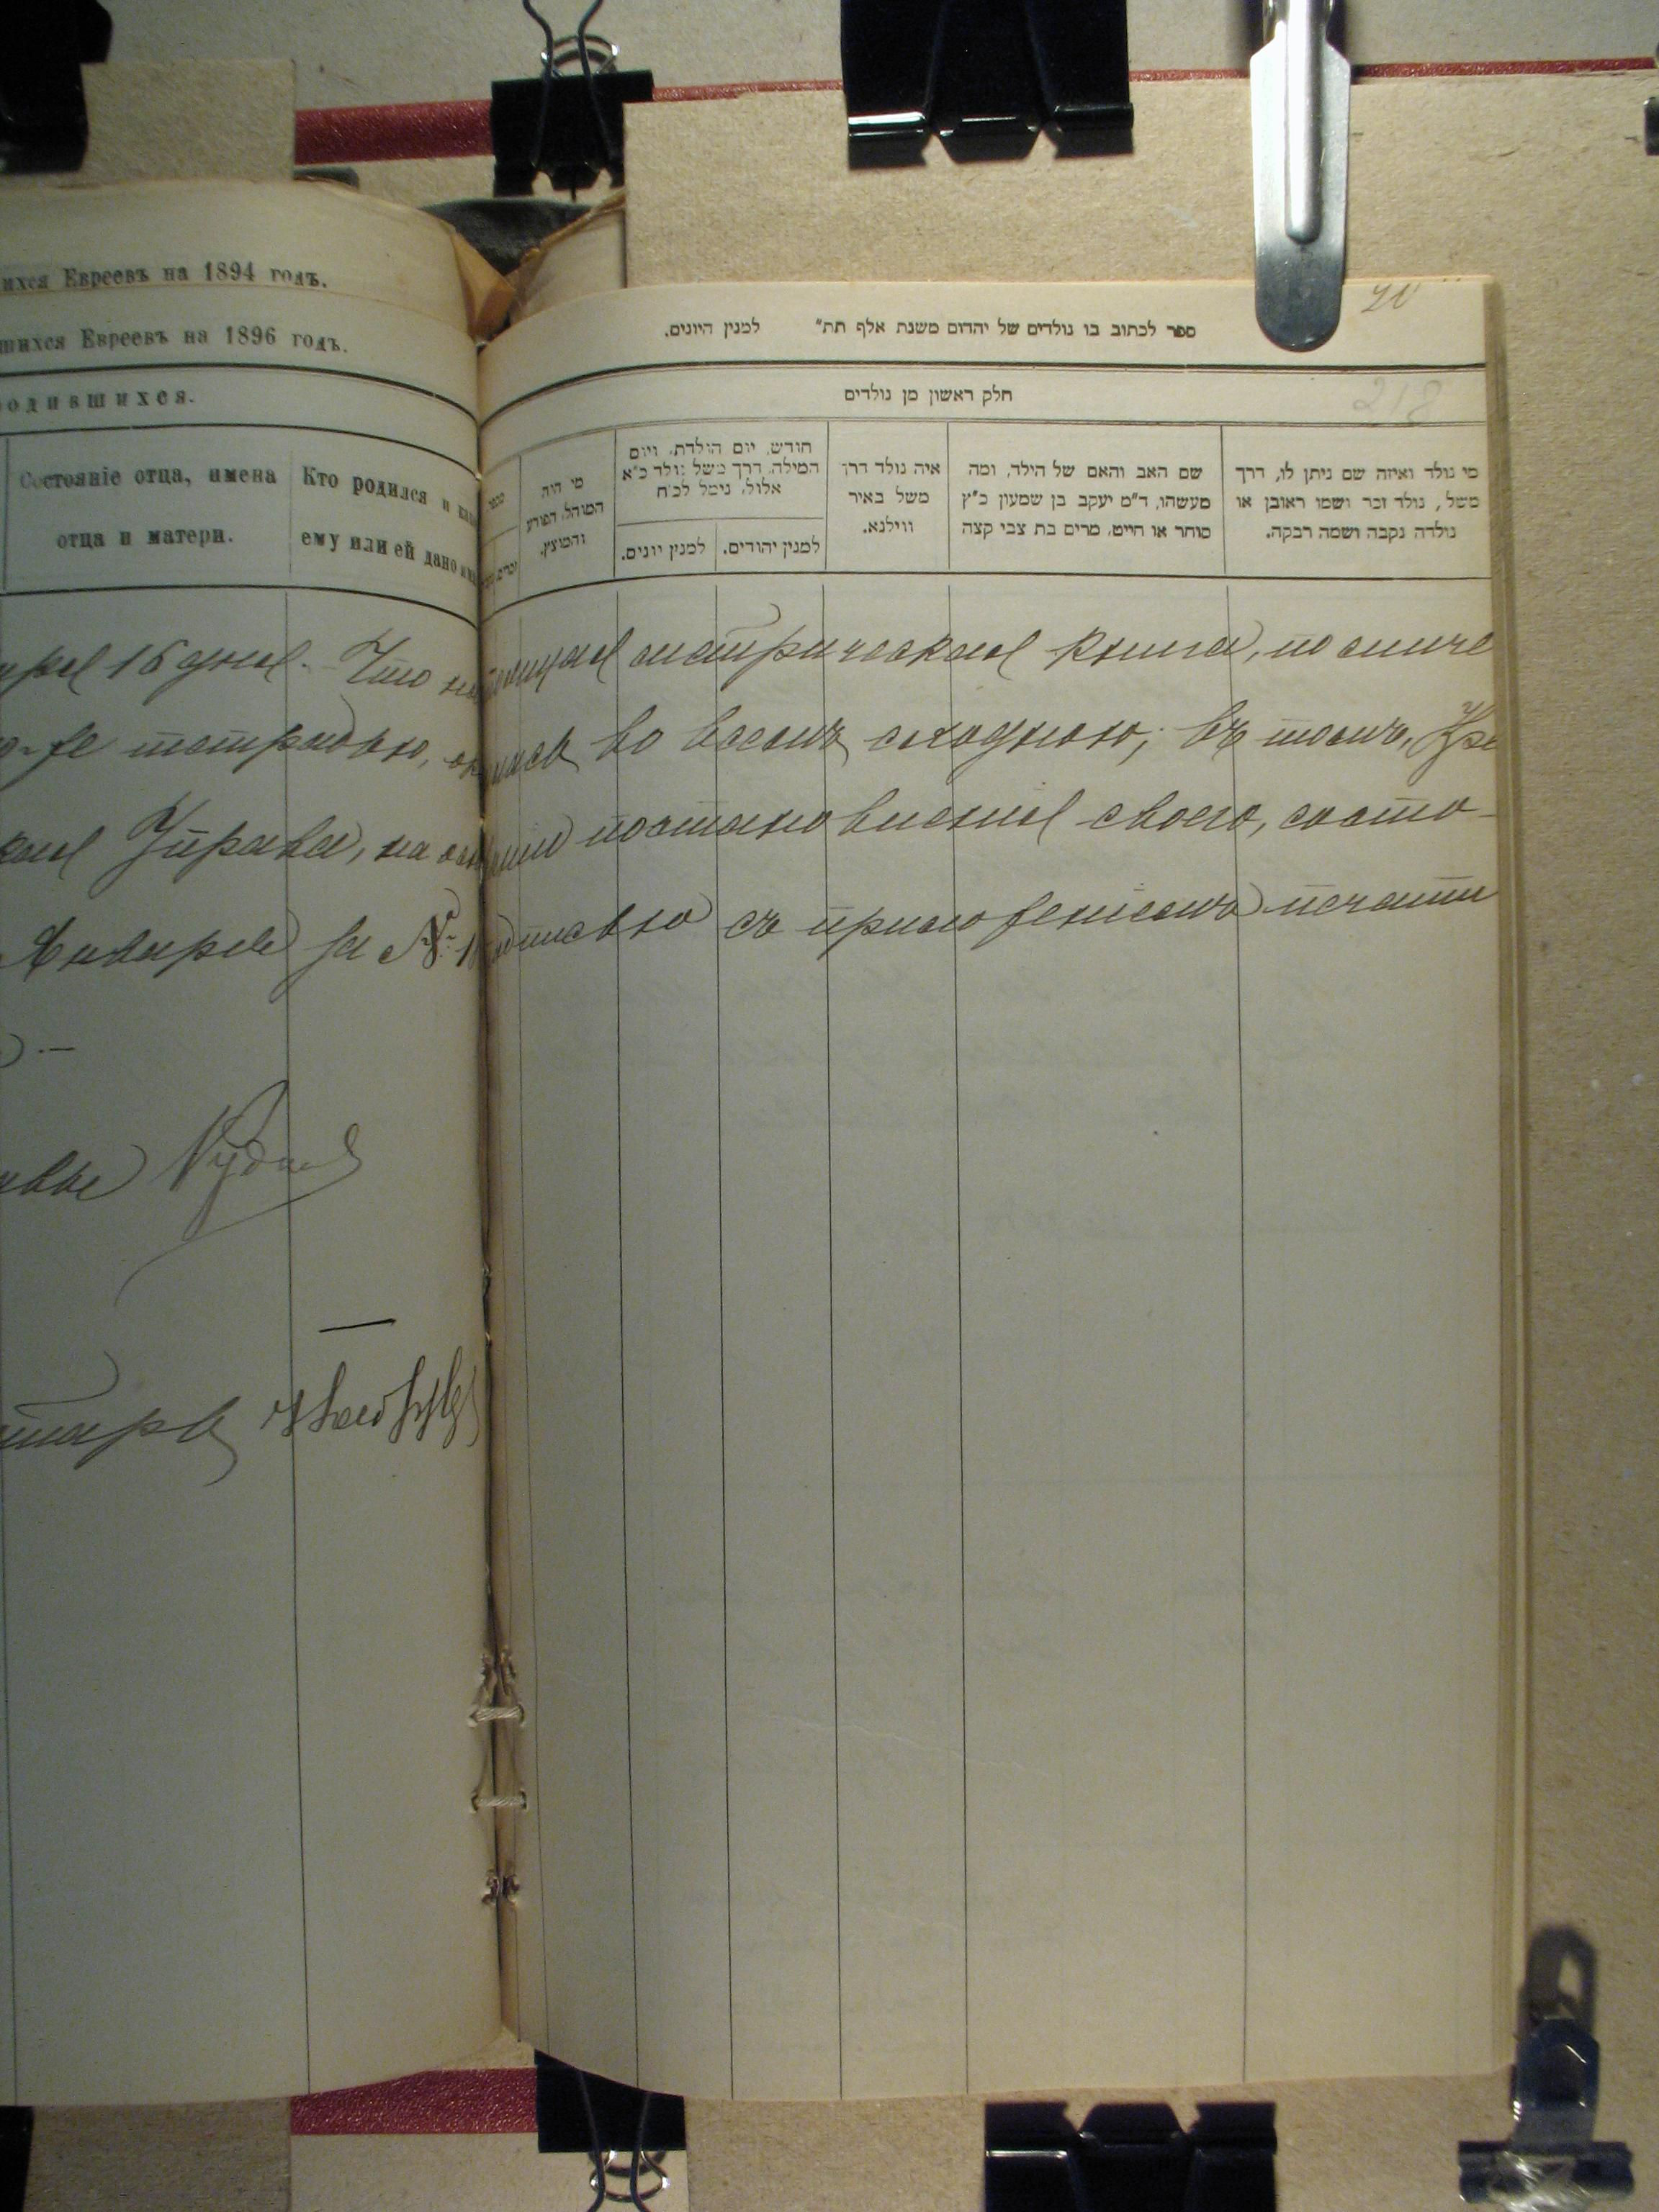 ихся Евреевъ на 1894 годъ.
шихся Евреевъ на 1896 годъ.
родившихся.
Состояніе отца, имена
отца и матери.
Кто родился и
ему или ей дано
16 дня. Что
тетрадью,
Управа, на
Января за №
20
ספר לכתוב בו נולדים של יהדום משנת אלף תת״ למנין היונים.
218
חלק ראשון מן נולדים
מי נולד ואיזה שם ניתן לו, דרך
משל, נולד זכר ושמו ראובן או
נולדה נקבה ושמה רבקה.
שם האב והאם של הילד, ומה
מעשהו, ד״מ יעקב בן שמעון כ״ץ
סוחר או חייט, מרים בת צבי קצה
איה נולד דרך
משל באיר
ווילנא.
חודש, יום הולדת, ויום
המילה, דרך משל נולד כ״א
אלול, נימל לכ״ח
למנין יהודים.
למנין יונים.
מי היה
המוהל, הפורע
והמוצץ.
метрическая книга, по сличе
во всемъ сходною; въ томъ,
постановленія своего, состо-
съ приложеніемъ печати